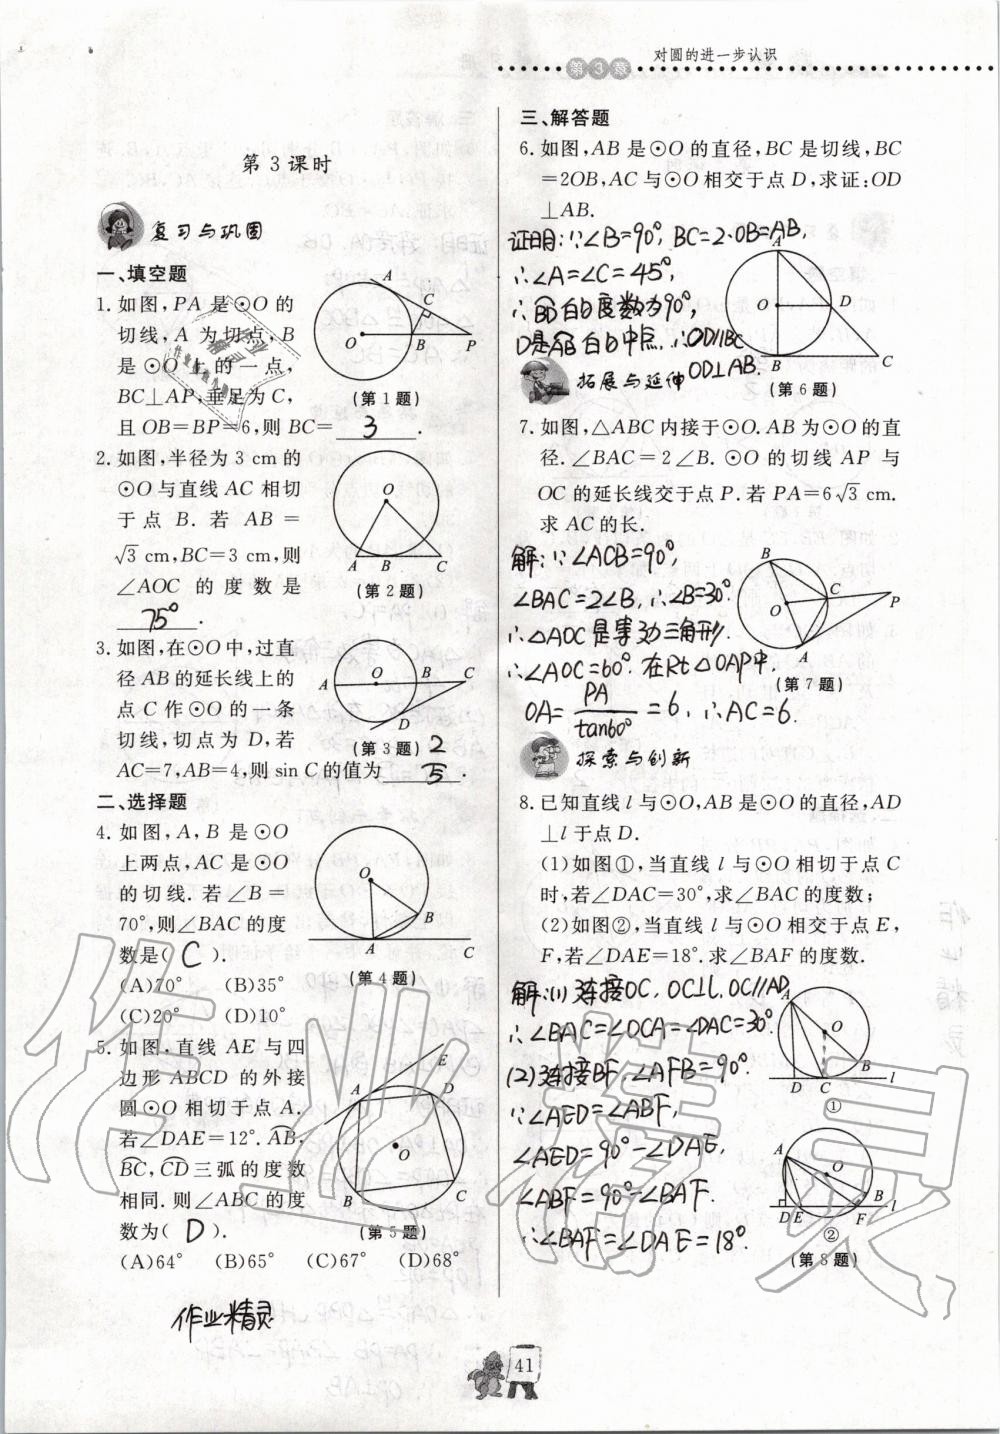 对圆的进一步认识
第3章
第3课时
复习与巩固
一、填空题
1.如图,PA是⊙O的
切线,A为切点,B
是⊙O上的一点,
BC⊥AP,垂足为C,
且OB=BP=6,则BC= 3 .
A
C
O
B
P
(第1题)
2.如图,半径为3 cm的
⊙O与直线AC相切
于点B.若AB=
√3 cm,BC=3 cm,则
∠AOC的度数是
75° .
O
A B C
(第2题)
3.如图,在⊙O中,过直
径AB的延长线上的
点C作⊙O的一条
切线,切点为D,若
AC=7,AB=4,则sin C的值为 2/5 .
A O B C
D
(第3题)
二、选择题
4.如图,A,B是⊙O
上两点,AC是⊙O
的切线.若∠B=
70°,则∠BAC的度
数是( C ).
(A)70° (B)35°
(C)20° (D)10°
O
B
A
C
(第4题)
5.如图,直线AE与四
边形ABCD的外接
圆⊙O相切于点A.
若∠DAE=12°.AB,
BC,CD三弧的度数
相同.则∠ABC的度
数为( D ).
(A)64° (B)65° (C)67° (D)68°
E
A
D
O
B
C
(第5题)
作业精灵
三、解答题
6.如图,AB是⊙O的直径,BC是切线,BC
=2OB,AC与⊙O相交于点D,求证:OD
⊥AB.
证明:∵∠B=90°,BC=2·OB=AB,
∴∠A=∠C=45°,
∴BD的度数为90°
D是AB的中点,∴OD∥BC
OD⊥AB.
A
O
D
B
C
(第6题)
拓展与延伸
7.如图,△ABC内接于⊙O.AB为⊙O的直
径.∠BAC=2∠B.⊙O的切线AP与
OC的延长线交于点P.若PA=6√3 cm.
求AC的长.
解:∵∠ACB=90°,
∠BAC=2∠B,∴∠B=30°
∴△AOC是等边三角形.
∴∠AOC=60°.在Rt△OAP中,
OA=PA/tan60°=6,∴AC=6.
B
C
P
O
A
(第7题)
探索与创新
8.已知直线l与⊙O,AB是⊙O的直径,AD
⊥l于点D.
(1)如图①,当直线l与⊙O相切于点C
时,若∠DAC=30°,求∠BAC的度数;
(2)如图②,当直线l与⊙O相交于点E,
F,若∠DAE=18°.求∠BAF的度数.
解:(1)连接OC,OC⊥l,OC∥AD,
∴∠BAC=∠OCA=∠DAC=30°
(2)连接BF,∠AFB=90°.
∵∠AED=∠ABF,
∠AED=90°-∠DAE,
∠ABF=90°-∠BAF.
∴∠BAF=∠DAE=18°.
A
O
B
D C l
①
A
O
B
D E F l
②
(第8题)
作业精灵
41